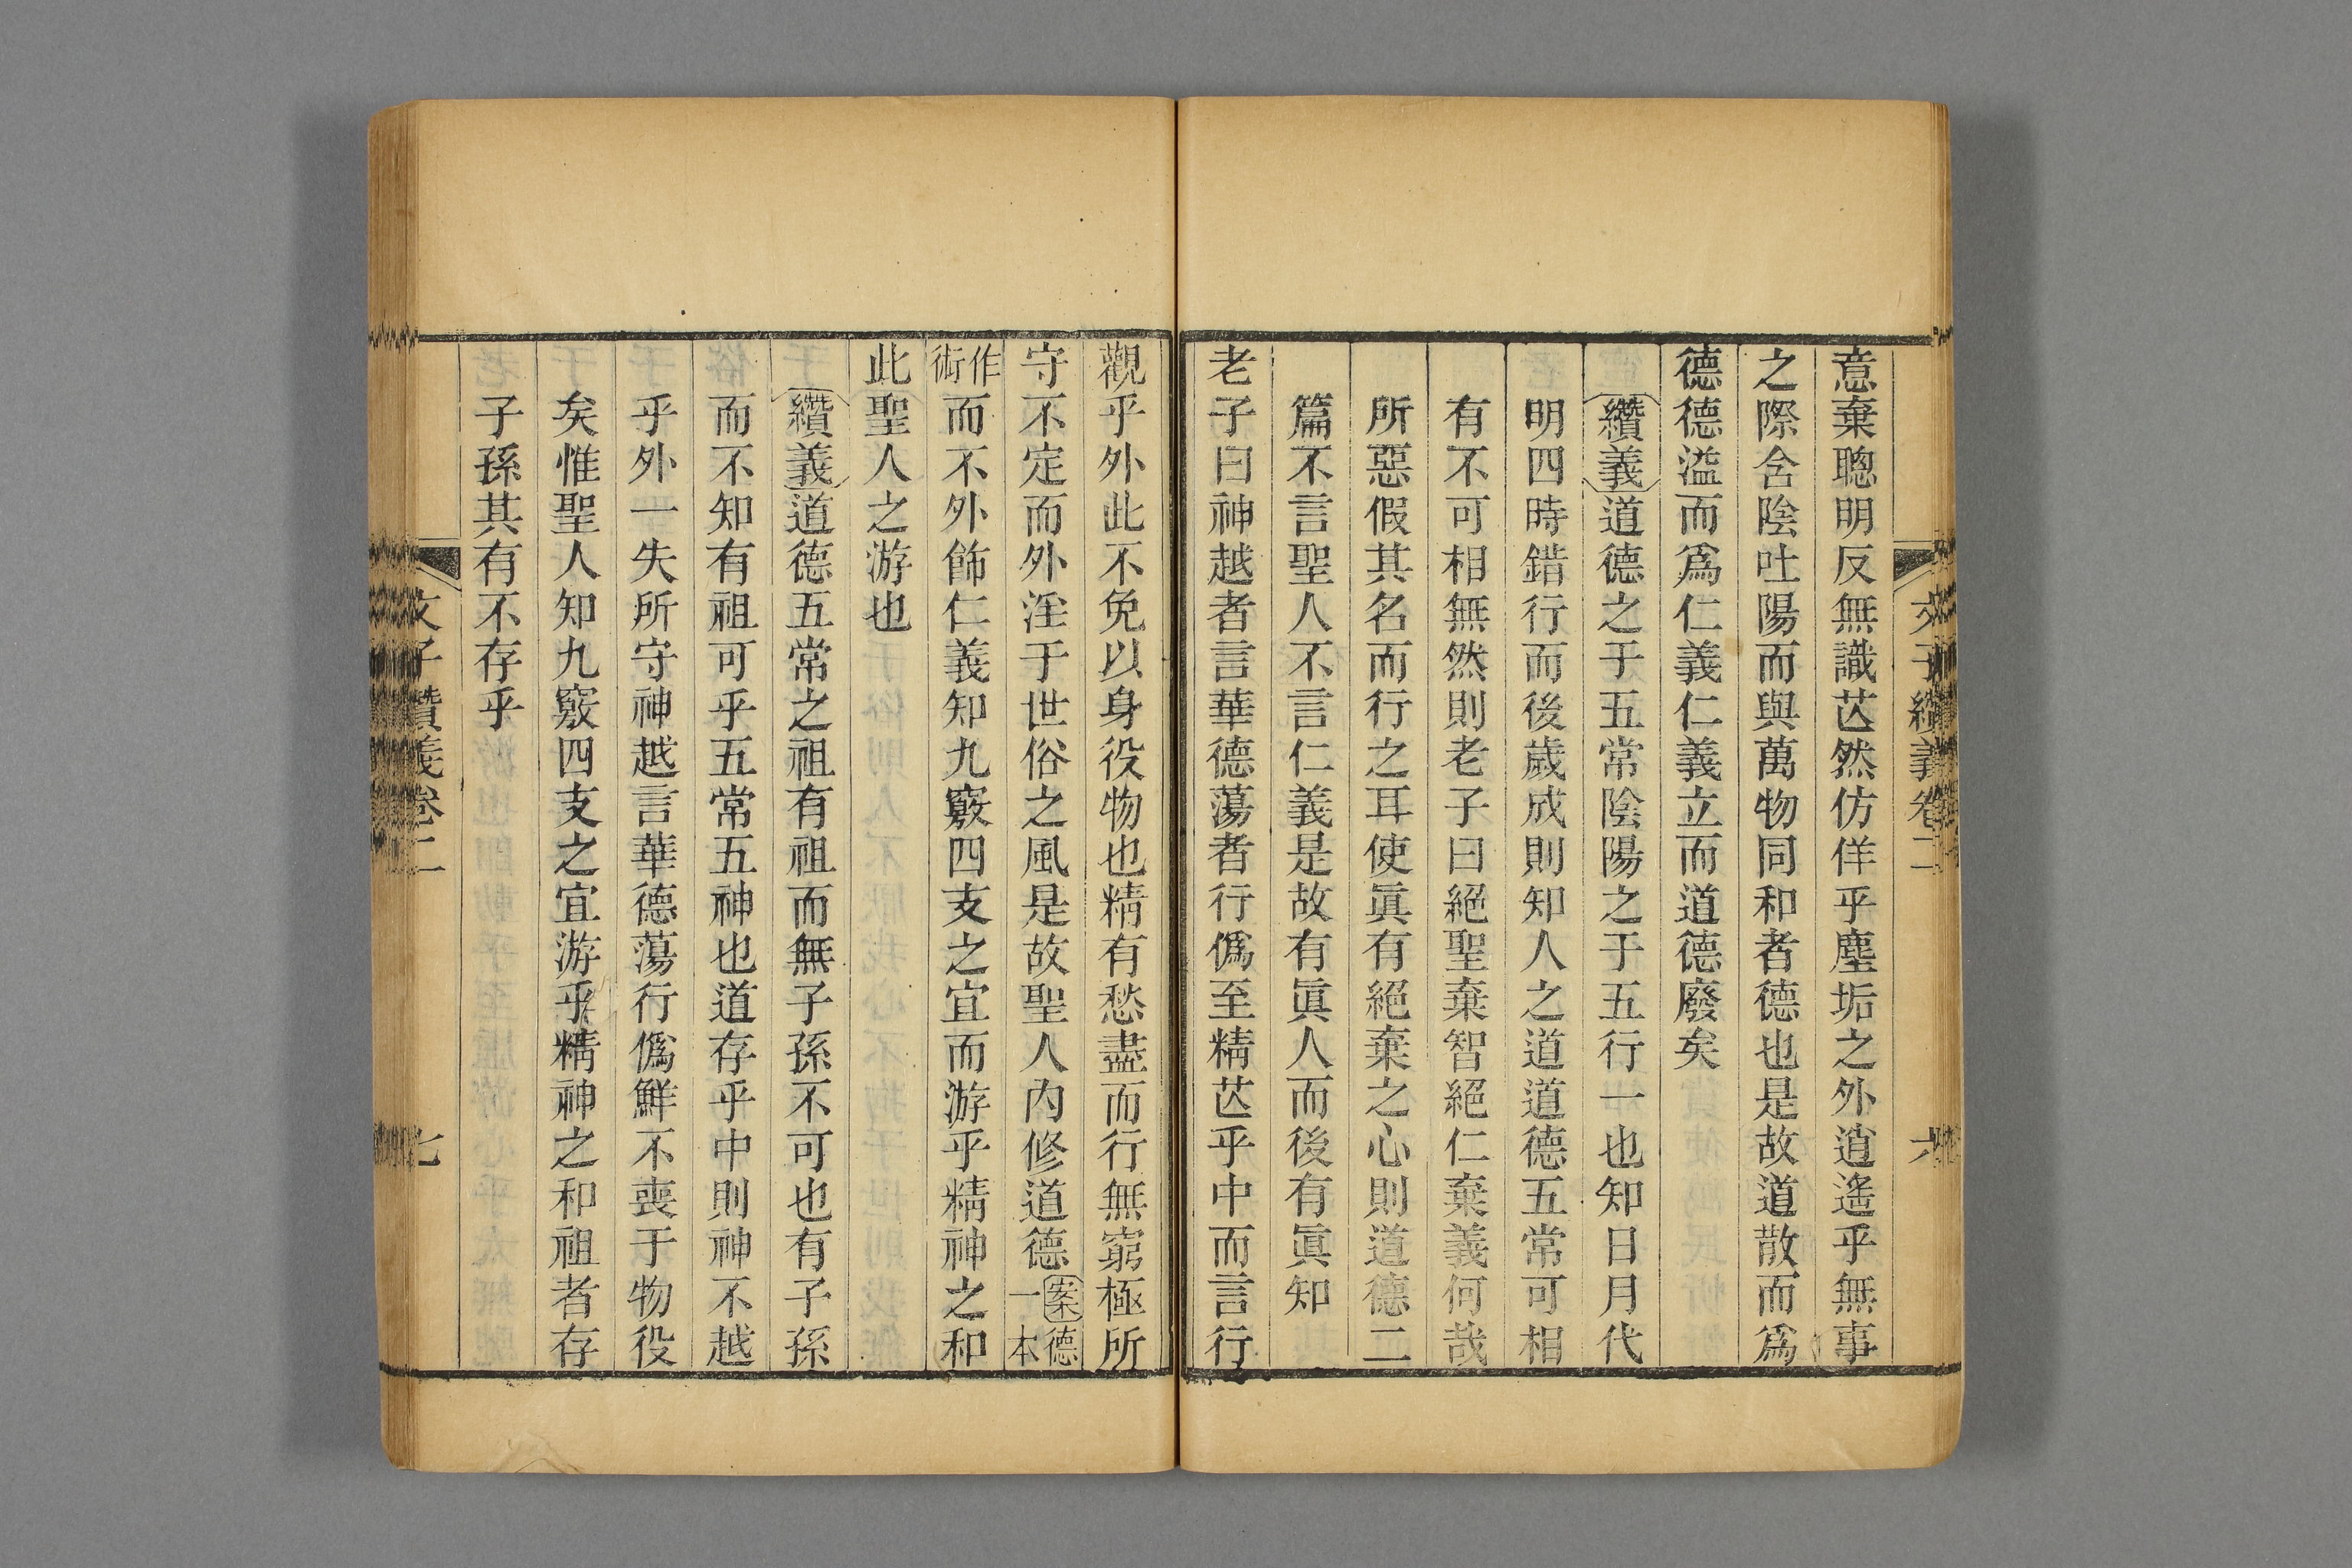 文子纘義卷二 六
意棄聰明反無識芒然仿佯乎塵垢之外逍遙乎無事
之際含陰吐陽而與萬物同和者德也是故道散而爲
德德溢而爲仁義仁義立而道德廢矣
纘義道德之于五常陰陽之于五行一也知日月代
明四時錯行而後歲成則知人之道道德五常可相
有不可相無然則老子曰絕聖棄智絕仁棄義何哉
所惡假其名而行之耳使眞有絕棄之心則道德二
篇不言聖人不言仁義是故有眞人而後有眞知
老子曰神越者言華德蕩者行僞至精芒乎中而言行
觀乎外此不免以身役物也精有愁盡而行無窮極所
守不定而外淫于世俗之風是故聖人內修道德案德一本
作術而不外飾仁義知九竅四支之宜而游乎精神之和
此聖人之游也
纘義道德五常之祖有祖而無子孫不可也有子孫
而不知有祖可乎五常五神也道存乎中則神不越
乎外一失所守神越言華德蕩行僞鮮不喪于物役
矣惟聖人知九竅四支之宜游乎精神之和祖者存
子孫其有不存乎
文子纘義卷二 七